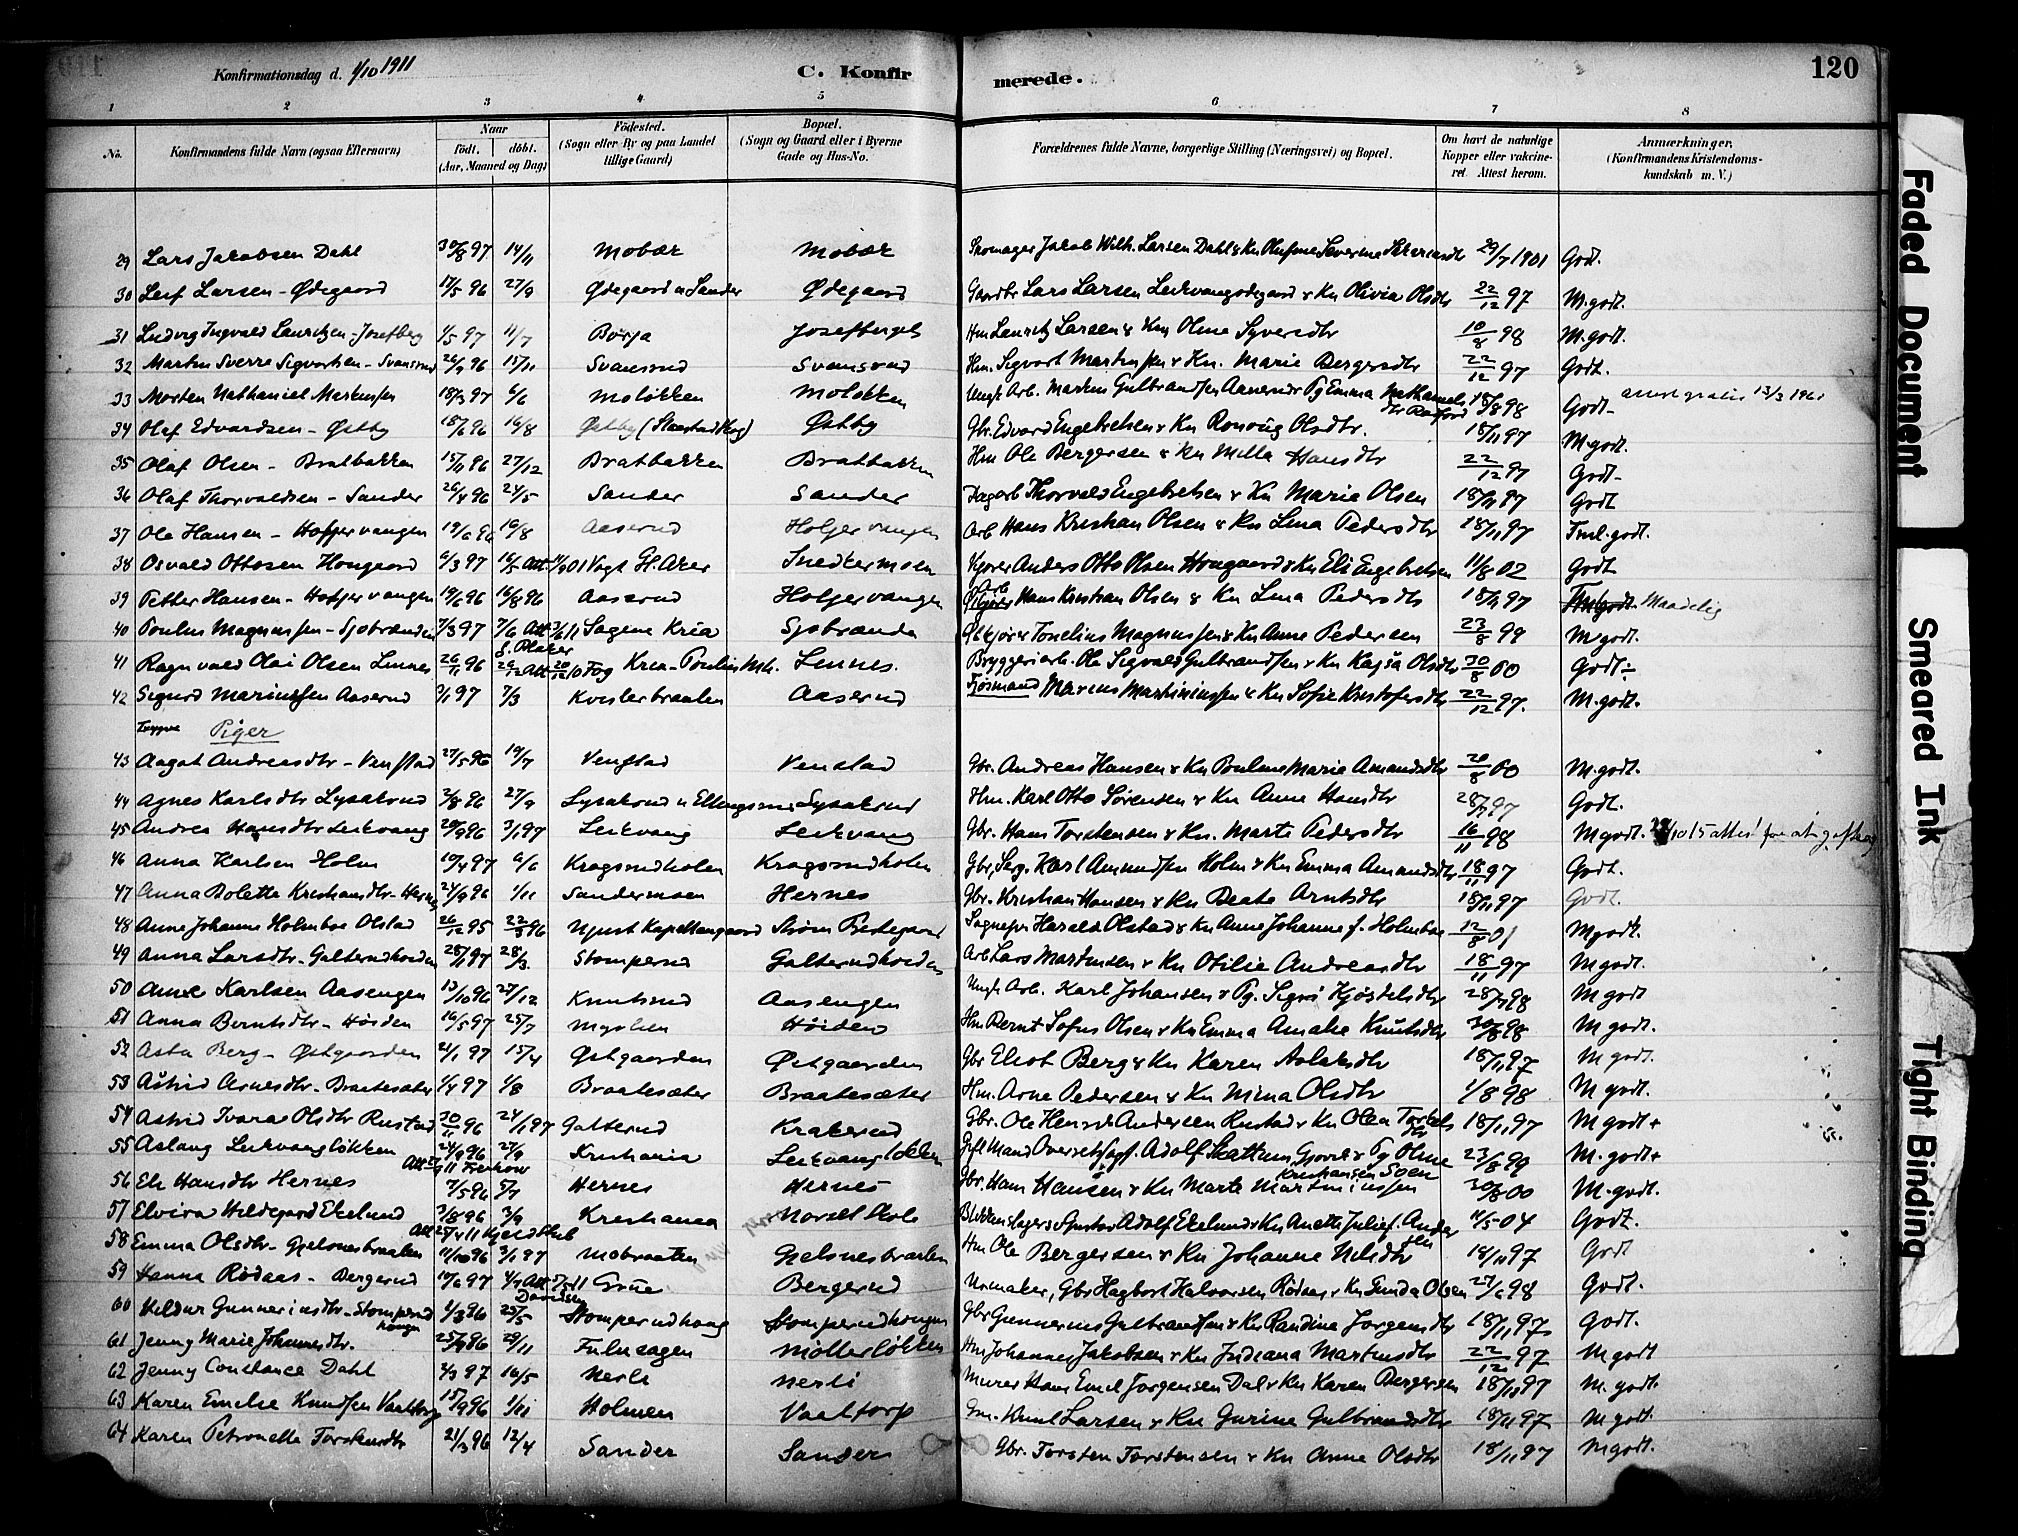 Konfirmationsdag d. 1/10 1911 C. Konfirmerede. 120
1 2 3 4 5 6 7 8
No. Konfirmandens fulde Navn (ogsaa Efternavn) Naar Födt. döbt. (Aar, Maaned og Dag) Födested. (Sogn eller By og paa Landet tillige Gaard) Bopæl. (Sogn og Gaard eller i Byerne Gade og Hus-No. Forældrenes fulde Navne, borgerlige Stilling (Næringsvei) og Bopæl. Om havt de naturlige Kopper eller vakcineret. Attest herom. Anmærkninger. (Konfirmandens Kristendomskundskab m. V.)
29 Lars Jakobsen Dahl 30/8 97 14/11 Mobær Mobær Skomager Jakob Wilh. Larsen Dahl & Kn 29/7 1901 Godt.
30 Leif Larsen - Ødegaard 17/5 96 27/9 Ødegaard u Sander Ødegaard Gaardbr Lars Larsen & Kn Olivia Olsdtr 22/12 97 M.godt.
31 Ludvig Ingvald Lauritzen - Josefberg 1/5 97 11/7 Borja Josefberget Hm Lauritz Larsen & Kn Oline Syversdtr 10/8 98 M.godt.
32 Martin Sverre Sigvartsen - Svansrud 26/9 96 15/11 Svansrud Svansrud Hm. Sigvart Martinsen & Kn. Marie Bergersdtr 22/12 97 Godt.
33 Morten Nathaniel Markussen 18/3 97 6/6 Moløkken Moløkken Ungk Arb. Markus Gulbrandsen Aaserud & Pg Emma Nathanielsdtr 18/8 98 Godt- 13/3 1961
34 Olaf Edvardsen - Østby 18/6 96 16/8 Østby Østby Gbr. Edvard Engebretsen & Kn Ronoug Olsdtr. 18/11 97 M.godt.
35 Olaf Olsen - Bratbakken 15/11 96 27/12 Bratbakken Bratbakken Hm Ole Bergersen & Kn Milla Hansdtr 22/12 97 Godt-
36 Olaf Thorvaldsen - Sander 26/4 96 24/5 Sander Sander Dagarb Thorvald Engebretsen & Kn Marie Olsen 18/11 97 Godt
37 Ole Hansen - Holjervangen 19/6 96 16/8 Aaserud Holjervangen Arb Hans Kristian Olsen & Kn Lina Pedersdtr 18/11 97 Tml.godt.
38 Osvald Ottosen Hougaard 6/3 97 Snedkermoen Anders Otto Olsen Hougaard & Kn Eli Engebretsen 11/8 02 Godt
39 Petter Hansen - Holjervangen 19/6 96 16/8 96 Aaserud Holjervangen Arb Hans Kristian Olsen & Kn Lina Pedersdtr 18/11 97 Maadelig
40 Poulus Magnussen - Sjobrænden 7/3 97 7/6 Att 3/6 11 Sagene Kria Sjobrænde Tonelius Magnussen & Kn Anne Pedersen 23/8 99 M.godt.
41 Ragnvald Olai Olsen Linnes 26/11 96 26/12 Att 20/12 10 Kria - Paulus Mh. Linnes. Bryggeriarb. Ole Sigvald Gulbrandsen & Kn Kajsa Olsdtr 30/8 00 Godt÷
42 Sigurd Mariussen Aaserud 3/1 97 7/3 Kveslerbraaten Aaserud Fjøsmand Marius Martiniussen & Kn Sofie Kristofersdtr 22/12 97. M.godt.
Piger
43 Aagot Andreasdtr - Venstad 27/5 96 19/7 Venstad Venstad Gbr. Andreas Hansen & Kn Pouline Marie Amundsdtr 20/8 00 M.godt.
44 Agnes Karlsdtr Lysakrud 3/8 96 27/9 Lysakrud Lysakrud Hm. Karl Otto Sørensen & Kn Anne Hansdtr 28/7 97 Godt.
45 Andrea Hansdtr Leikvang 20/9 96 3/1 97 Leikvang Leikvang Gbr. Hans Torstensen & Kn. Marte Pedersdtr 16/11 98 Mgodt.
46 Anna Karlsen Holm 10/4 97 6/6 Kragsrudholen Kragsrudholen Gbr, Sag. Karl Amundsen Holm & Kn Emma Amundsdtr 18/11 97 Godt.
47 Anna Bolette Kristiansdtr - Hernes 24/9 96 1/11 Sandermoen Hernes Gbr. Kristian Hansen & Kn Beate Arntsdtr 18/11 97 Godt.
48 Anne Johanne Holmboe Olstad 26/12 95 22/3 96 Strøm Prestegaard Sogneprest Harald Olstad & Kn Anne Johanne f. Holmboe 12/8 01 Mgodt.
49 Anna Larsdtr - Galterudhoiden 28/1 97 28/3 Stomperud Galterudhoiden Arb Lars Martinsen & Kn Otilie Andreasdtr 18/11 97 M godt.
50 Anne Karlsen Aasengen 13/10 96 27/12 Knutsrud Aasengen Ungk Arb. Karl Johansen & Pg. Sigri Kjøstelsdtr 28/7 98 M godt
51 Anna Berntsdtr - Høiden 16/5 97 25/7 Høiden Hm Bernt Sofus Olsen & Kn Emma Amalie Knutsdtr 30/8 98 M godt.
52 Asta Berg - Østgaarden 21/1 97 15/4 Østgaarden Østgaarden Gbr Eliot Berg & Kn Karen Aslaksdtr 18/11 97 M godt.
53 Astrid Arnesdtr - Braatesæter 1/4 97 1/8 Braatesæter Braatesæter Hm. Arne Pedersen & Kn Mina Olsdtr 1/8 98 M godt.
54 Astrid Ivara Olsdtr Rustad 30/11 96 24/1 97 Galterud Krakerud Gbr. Ole Henrik Andersen Rustad & Kn Olea Torkelsdtr 18/11 97 M godt+
55 Aslaug Leikvangløkken 24/9 96 27/9 Kristiania Leikvangløkken Adolf Skattum & Pg Oline Kristiansen Soen 23/8 99 M.godt+
56 Eli Hansdtr Hernes 7/5 96 5/7 Hernes Hernes Gbr. Hans Hansen & Kn Marte Martiniussen 30/8 00 M.godt.
57 Elvira Hildegard Ekelund 3/8 96 3/9 Kristiania Morset Skole Blikkenslager Gustav Adolf Ekelund & Kn Anette Julie f. Andersen 11/5 04 Godt.
58 Emma Olsdtr - Gjelsnesbraaten 11/10 96 3/1 97 Mobraaten Gjelsnesbraaten Hm Ole Bergersen & Kn Johanne Nilsdtr 18/11 97 Godt
59 Hanna Rødaas - Bergerud 10/6 97 Grue Bergerud Urmaker, Gbr Hagbart Halvorsen Rødaas & Kn Gunda Olsen 27/6 98 Godt.
60 Hildur Gunneriusdtr - Stomperudhaugen 1/3 96 25/5 Stomperudhaug Stomperudhaugen Gbr Gunnerius Gulbrandsen & Kn Randine Jørgensdtr 18/11 97 Godt.
61 Jenny Marie Johannesdtr. 25/9 96 29/11 Fulusagen Møllerløkken Hm Johannes Jakobsen & Kn Indiana Martinsdtr 22/12 97 M godt
62 Jenny Constance Dahl 4/3 97 16/5 Nerli Nerli Murer Hans Emil Jørgensen Dal & Kn Karen Bergersen 18/11 97 M.godt.
63 Karen Emelie Knudsen Vaaltorp 15/9 96 1/11 Holmen Vaaltorp Gm. Knut Larsen & Kn Gurine Gulbrandsdtr 18/11 97 M godt.
64 Karen Petronelle Torstensdtr 21/3 96 12/4 Sander Sander Gbr. Torsten Torstensen & Kn Anne Olsdtr 18/11 97 Mgodt.
Faded Document
Smeared Ink
Tight Binding